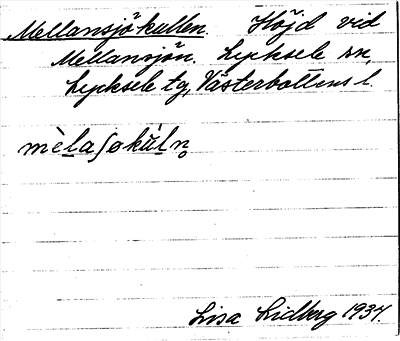 Mellansjö-kullen. Höjd vid
Mellansjön. Lycksele sn,
Lycksele tg, Västerbottens l.
mèlaʃøkùl̥n̥
Lisa Lidberg 1934.